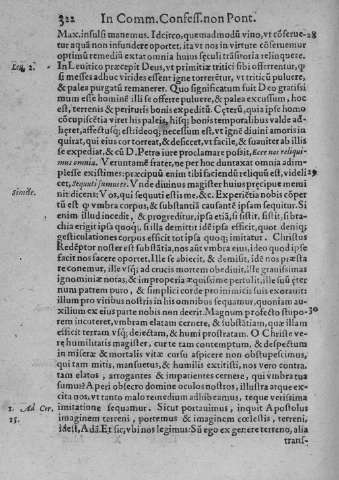 322 In Comm. Confess. non Pont.
Max. insulsi manemus. Idcirco, quemadmodū vino, vt cōserue- 28
tur aquā non infundere oportet, ita vt nos in virtute cōseruemur
optimū remediū extat omnia huius sęculi trāsitoria relinquere.
Leu. 2. In Leuitico præcepit Deus, vt primitiæ tritici sibi offerrentur, q̃
si messes adhuc virides essent igne torrerētur, vt triticū puluere,
& palea purgatū remaneret. Quo significatum fuit Deo gratissi
mum esse hominē illi se offerre puluere, & palea excussum, hoc
est, terrenis & perituris bonis expeditū. Cęterū, quia ipse homo
cōcupiscētia viret his paleis, hisq; bonis temporalibus valde ad-
hęret, affectusq; est; ideoq; necessum est, vt ignē diuini amoris in
quirat, qui eius cor torreat, & desiccet, vt facile, & suauiter ab illis
se expediat, & cū D. Petro iure proclamare possit, Ecce nos reliqui-
mus omnia. Verumtamē frater, ne per hoc duntaxat omnia adim-
plesse existimes: præcipuū enim tibi faciendū reliquū est, videli 29
cet, Sequuti sumus te. Vnde diuinus magister huius pręcipue memi
simile. nit dicens: Vos, qui sequuti estis me. &c. Experiētia nobis cōper
tū est q̃ vmbra corpus, & substantiā causantē ipsam sequitur. Si
enim illud incedit, & progreditur, ipsa etiā, si sistit. sistit, si bra-
chia erigit ipsa quoq;, si illa demittit idē ipsa efficit, quot deniq;
gesticulationes corpus efficit tot ipsa quoq; imitatur. Christus
Redēptor noster est substātia, nos aūt vmbra eius, ideo quod ipse
facit nos facere oportet. Ille se abiecit, & demisit, idē nos præsta
re conemur, ille vsq; ad crucis mortem obediuit, ille grauissimas
ignominias, notas, & improperia æquissime pertulit, ille suū æter
num patrem puro, & simplici corde pro inimicis suis exorauit:
illum pro viribus nostris in his omnibus sequamur, quoniam au-
xilium ex eius parte nobis non deerit. Magnum profecto stupo- 30
rem incuteret, vmbram elatam cernere, & substātiam, quæ illam
efficit terram vsq; deiectam, & humi prostratam. O Christe ve-
re humilitatis magister, curte tam contemptum, & despectum
in miseræ & mortalis vitæ cursu aspicere non obstupescimus,
qui tam mitis, mansuetus, & humilis extitisti, nos vero contra,
tam elatos, arrogantes & impatientes cernere, qui vmbra tua
sumus? Aperi obsecro domine oculos nostros, illustra atque ex-
cita nos, vt tanto malo remedium adhibeamus, teque verissima
1. Ad Cor. imitatione sequamur. Sicut portauimus, inquit Apostolus
15. imaginem terreni, portemus & imaginem cœlestis, terreni,
idest, Adā. Et sic, vbi nos legimus: Sū ego ex genere terreno, alia
trans-